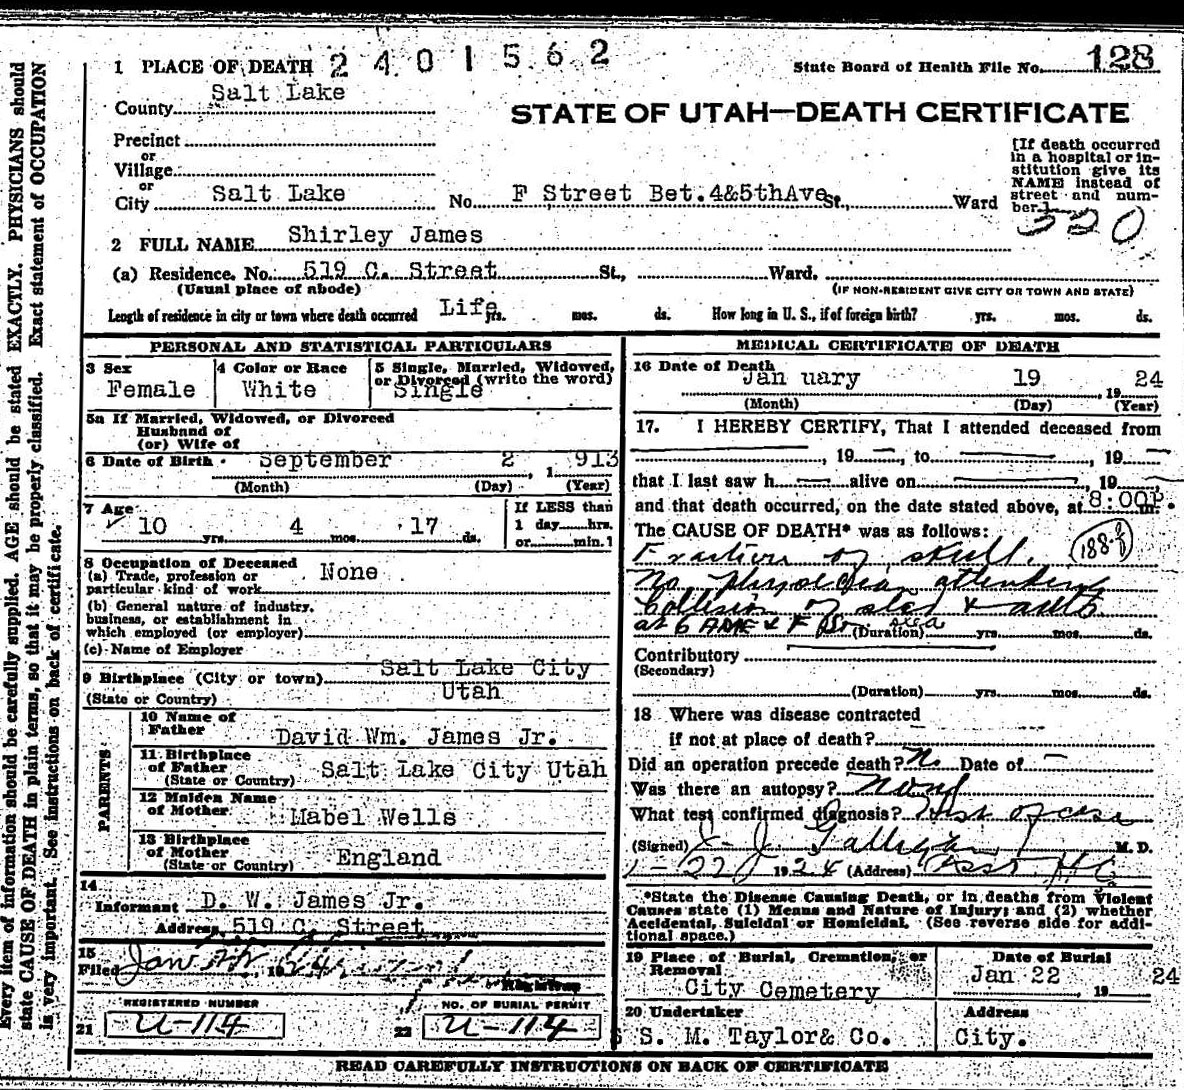 Every item of information should be carefully supplied. AGE should be stated EXACTLY. PHYSICIANS should
state CAUSE OF DEATH in plain terms, so that it may be properly classified. Exact statement of OCCUPATION
is very important. See instructions on back of certificate.
1 PLACE OF DEATH 2401562
State Board of Health File No. 128
County Salt Lake
STATE OF UTAH—DEATH CERTIFICATE
Precinct
or
Village
or
City Salt Lake No. F Street Bet.4&5thAve St., Ward
[If death occurred
in a hospital or in-
stitution give its
NAME instead of
street and num-
ber.]
320
2 FULL NAME Shirley James
(a) Residence. No. 519 C. Street St., Ward.
(Usual place of abode) (IF NON-RESIDENT GIVE CITY OR TOWN AND STATE)
Length of residence in city or town where death occurred Life yrs. mos. ds. How long in U. S., if of foreign birth? yrs. mos. ds.
PERSONAL AND STATISTICAL PARTICULARS
3 Sex
Female
4 Color or Race
White
5 Single, Married, Widowed,
or Divorced (write the word)
Single
5a If Married, Widowed, or Divorced
Husband of
(or) Wife of
6 Date of Birth September 2, 1 913
(Month) (Day) (Year)
7 Age
10 yrs. 4 mos. 17 ds.
If LESS than
1 day hrs.
or min.?
8 Occupation of Deceased
(a) Trade, profession or
particular kind of work None
(b) General nature of industry,
business, or establishment in
which employed (or employer)
(c) Name of Employer
9 Birthplace (City or town) Salt Lake City
(State or Country) Utah
PARENTS
10 Name of
Father David Wm. James Jr.
11 Birthplace
of Father
(State or Country) Salt Lake City Utah
12 Maiden Name
of Mother Mabel Wells
13 Birthplace
of Mother
(State or Country) England
14
Informant D. W. James Jr.
Address 519 C. Street
15
Filed Jan 24
Registrar
REGISTERED NUMBER
21 U-114
NO. OF BURIAL PERMIT
22 U-114
MEDICAL CERTIFICATE OF DEATH
16 Date of Death
Jan uary 19 19 24
(Month) (Day) (Year)
17. I HEREBY CERTIFY, That I attended deceased from
, 19 , to , 19
that I last saw h alive on , 19
and that death occurred, on the date stated above, at 8:00P m.
The CAUSE OF DEATH* was as follows:
of skull. 188
No physician attending
Collision of sled & auto
at 6 AVE & F St
(Duration) yrs. mos. ds.
Contributory
(Secondary)
(Duration) yrs. mos. ds.
18 Where was disease contracted
if not at place of death?
Did an operation precede death? No Date of —
Was there an autopsy? None
What test confirmed diagnosis? Hist of case
(Signed) J. J. Galligan M. D.
1-22 1924 (Address) Asst H C
*State the Disease Causing Death, or in deaths from Violent
Causes state (1) Means and Nature of Injury; and (2) whether
Accidental, Suicidal or Homicidal. (See reverse side for addi-
tional space.)
19 Place of Burial, Cremation, or
Removal
City Cemetery
Date of Burial
Jan 22 19 24
20 Undertaker
S. M. Taylor& Co.
Address
City.
READ CAREFULLY INSTRUCTIONS ON BACK OF CERTIFICATE